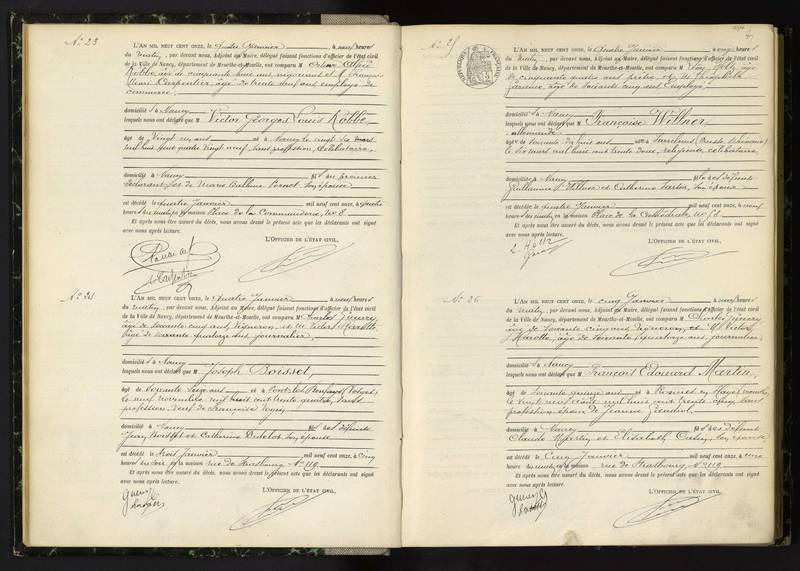 N° 23
L'AN MIL NEUF CENT ONZE, le quatre Janvier, à neuf heures
du matin, par devant nous, Adjoint au Maire, délégué faisant fonctions d'officier de l'état civil
de la Ville de Nancy, département de Meurthe-et-Moselle, ont comparu M Alfred
Robbe, âgé de cinquante ans négociant et M. François
Henri Carpentier, âgé de trente neuf ans employé de
commerce
domicilié s à Nancy
lesquels nous ont déclaré que M Victor Georges Louis Robbe
âgé de Vingt un ans né à Nancy le vingt six mars
mil huit cent quatre vingt neuf, sans profession, célibataire
domicilié à Nancy fils du premier
déclarant et de Marie Pernot, son épouse
est décédé le quatre Janvier mil neuf cent onze, à quatre
heures du matin, en sa maison Place de la Commanderie, N° 8
Et après nous être assuré du décès, nous avons dressé le présent acte que les déclarants ont signé
avec nous après lecture.
L'OFFICIER DE L'ÉTAT CIVIL,
N° 24
L'AN MIL NEUF CENT ONZE, le quatre Janvier, à neuf heures
du matin, par devant nous, Adjoint au Maire, délégué faisant fonctions d'officier de l'état civil
de la Ville de Nancy, département de Meurthe-et-Moselle, ont comparu M Charles
âgé de soixante cinq ans, vigneron, et M. Victor Marotte
âgé de soixante quatorze ans journalier
domicilié s à Nancy
lesquels nous ont déclaré que M Joseph Boisset,
âgé de soixante seize ans né à (Vosges)
le neuf novembre mil huit cent trente quatre, sans
profession, veuf de Françoise
domicilié à Nancy fils des défunts
Jean Boisset et Catherine Didelot son épouse
est décédé le trois Janvier mil neuf cent onze, à cinq
heures du soir, en sa maison rue de Strasbourg N° 119
Et après nous être assuré du décès, nous avons dressé le présent acte que les déclarants ont signé
avec nous après lecture.
L'OFFICIER DE L'ÉTAT CIVIL,
N° 25
L'AN MIL NEUF CENT ONZE, le quatre Janvier, à onze heures
du matin, par devant nous, Adjoint au Maire, délégué faisant fonctions d'officier de l'état civil
de la Ville de Nancy, département de Meurthe-et-Moselle, ont comparu M
de cinquante quatre ans prêtre et M. Théophile
âgé de soixante cinq ans employé
domicilié s à Nancy
lesquels nous ont déclaré que M Françoise Willner
allemande
âgée de soixante dix huit ans née à Sarrelouis (Prusse Rhénane)
le six mars mil huit cent trente deux, religieuse célibataire
domicilié à Nancy fille des défunts
Guillaume Willner et Catherine son épouse
est décédée le quatre Janvier mil neuf cent onze, à neuf
heures du matin, en sa maison Place de la Cathédrale N°
Et après nous être assuré du décès, nous avons dressé le présent acte que les déclarants ont signé
avec nous après lecture.
L'OFFICIER DE L'ÉTAT CIVIL,
N° 26
L'AN MIL NEUF CENT ONZE, le cinq Janvier, à neuf heures
du matin, par devant nous, Adjoint au Maire, délégué faisant fonctions d'officier de l'état civil
de la Ville de Nancy, département de Meurthe-et-Moselle, ont comparu M Charles
âgé de soixante cinq ans vigneron, et M. Victor
Marotte, âgé de soixante quatorze ans journalier
domicilié s à Nancy
lesquels nous ont déclaré que M François Edouard Martin,
âgé de soixante quinze ans né à Rosières en Haye (Meurthe)
le vingt neuf août mil huit cent trente cinq, sans
profession époux de Jeanne
domicilié à Nancy fils des défunts
Claude Martin et Elisabeth son épouse
est décédé le cinq Janvier mil neuf cent onze, à une
heure du matin, en sa maison rue de Strasbourg N° 119
Et après nous être assuré du décès, nous avons dressé le présent acte que les déclarants ont signé
avec nous après lecture.
L'OFFICIER DE L'ÉTAT CIVIL,